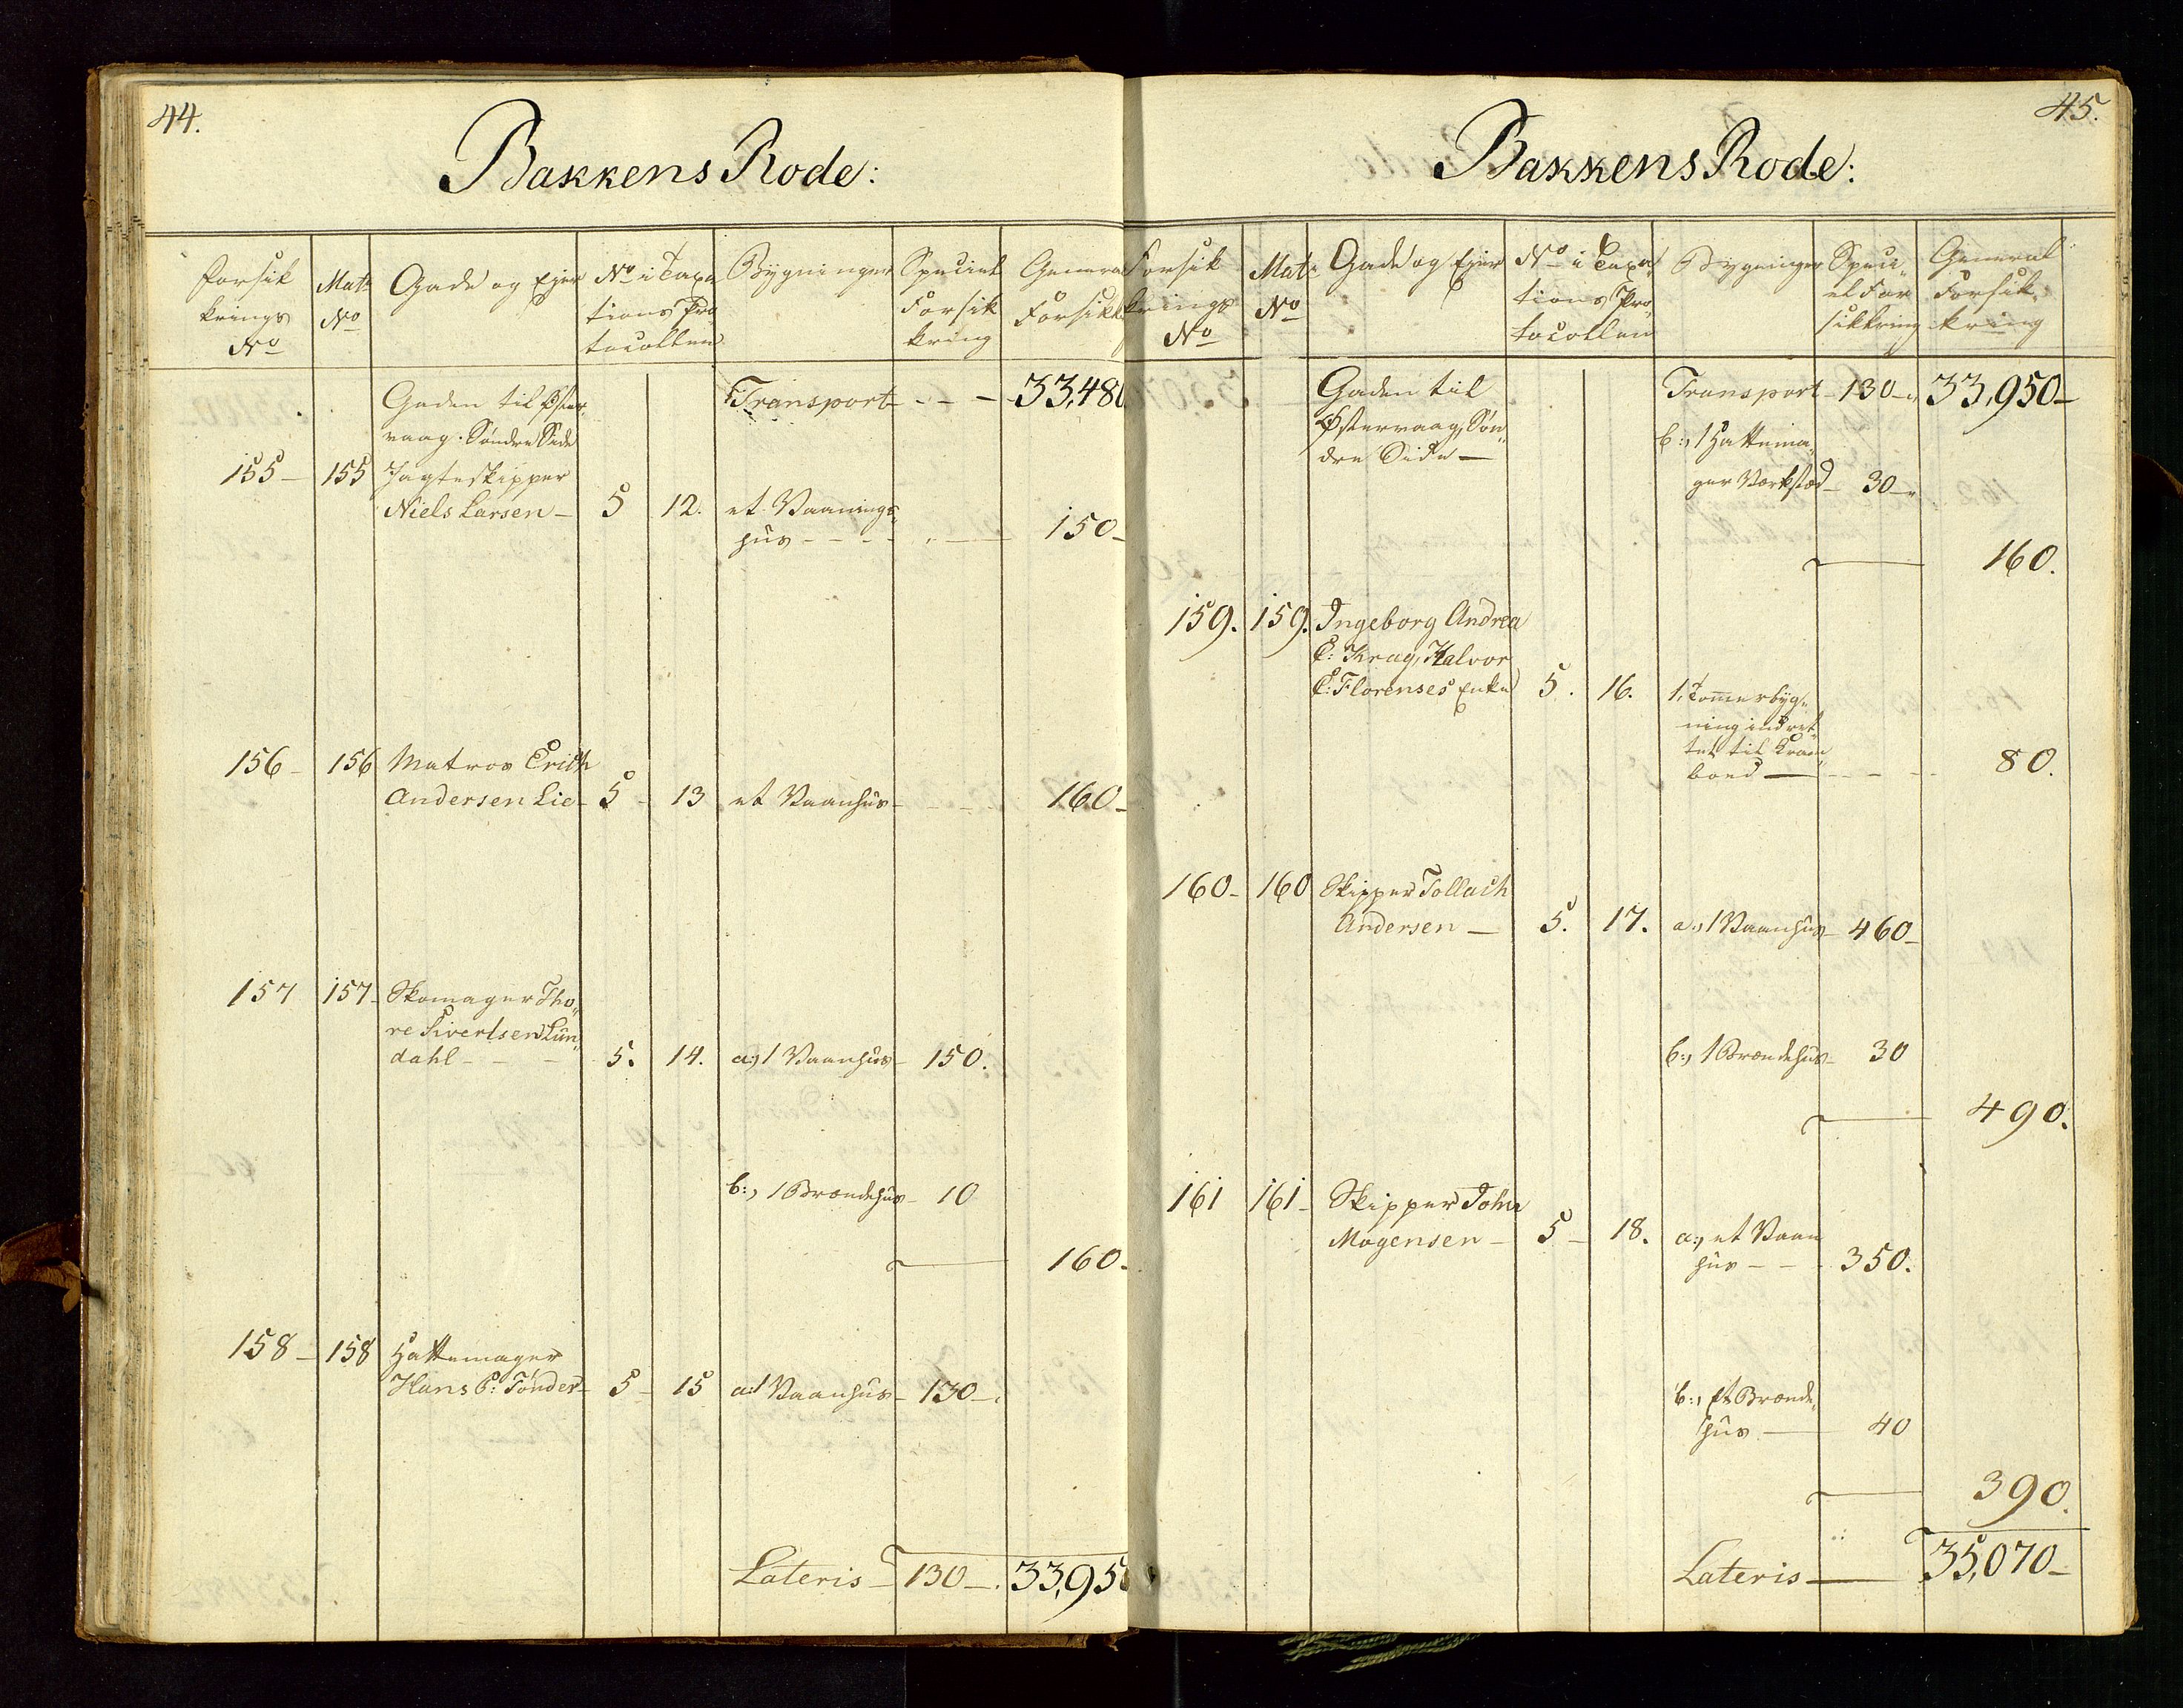 44.
Bakkens Rode:
Forsik
krings
No
Matr
No
Gade og Ejer
No i Taxa
tions Pro
tocollen
Bygninger
Speciel
Forsik
kring
General
Forsikk
Gaden til Øster
vaag. Søndre Side
Transport - - - 33,480
155 - 155 Jagteskipper
Niels Larsen - 5 12. et Vaanings
huus - - - - 150 -
156 - 156 Matros Erich
Andersen Lie - 5 - 13 et Vaanhuus - 160 -
157 157 - Skomager Tho„
re Sivertsen Lun„
dahl - - - 5. 14. a:, 1 Vaanhuus - 150.
b:, 1 Brændehuus - 10
160 -
158 - 158 Hattemager
Hans P: Tønder - 5 - 15 a: 1 Vaanhuus - 130 -
Lateris - 130 - 33,950
45.
Bakkens Rode:
Forsik
krings
No
Matr
No
Gade og Ejer
No i Taxa
tions Pro„
tocollen
Bygninger
Speci„
el For
sikkring
General
Forsik„
kring
Gaden til
Østervaag, Søn„
dre Side —
Transport - 130 - 33,950 -
b:, 1 Hattema„
ger Værksted - 30 -
160.
159. 159. Ingeborg Andrea
C: Krag, Halvor
C: Florenses Enke 5. 16. 1, Tommerbyg„
ning indret„
tet til Kram„
boed — 80.
160 - 160 Skipper Tollach
Andersen — 5. 17. a:, 1 Vaanhuus - 460 -
b:, 1 Brændehuus - 30
490.
161 161 - Skipper John
Mogensen - 5 - 18. a:, et Vaan
huus - - - 350.
b:, Et Brænde„
huus — 40
390.
Lateris — 35,070 -